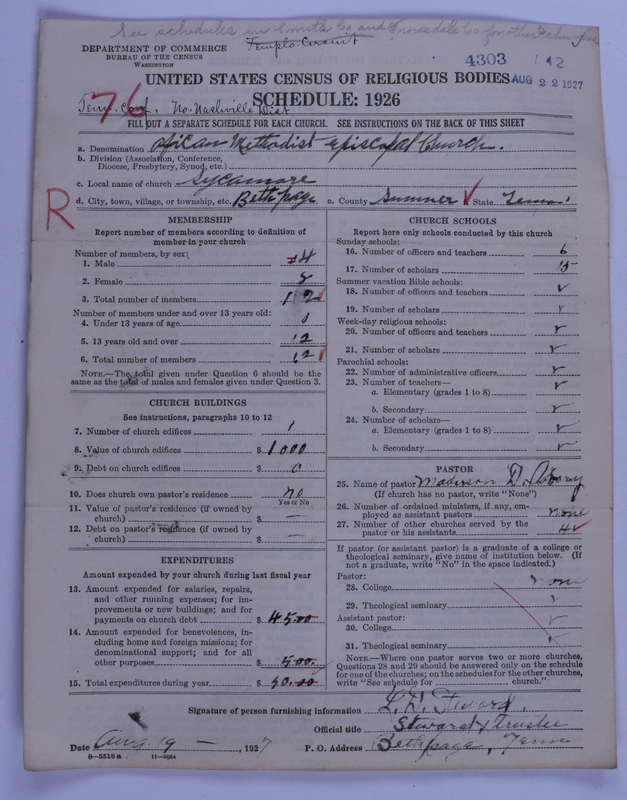 See schedules in Smith Co and Trousdale Co for other churches
Temple Circuit
DEPARTMENT OF COMMERCE
BUREAU OF THE CENSUS
WASHINGTON
4303
AUG 22 1927
UNITED STATES CENSUS OF RELIGIOUS BODIES
76
SCHEDULE: 1926
Tenn. Conf. No. Nashville Dist
FILL OUT A SEPARATE SCHEDULE FOR EACH CHURCH. SEE INSTRUCTIONS ON THE BACK OF THIS SHEET
a. Denomination African Methodist Episcopal Church.
b. Division (Association, Conference,
Diocese, Presbytery, Synod, etc.)
c. Local name of church Sycamore
d. City, town, village, or township, etc. Bethpage e. County Sumner State Tenn.
R
MEMBERSHIP
Report number of members according to definition of
member in your church
Number of members, by sex:
1. Male 4
2. Female 8
3. Total number of members 12
Number of members under and over 13 years old:
4. Under 13 years of age 0
5. 13 years old and over 12
6. Total number of members 12
NOTE.—The total given under Question 6 should be the
same as the total of males and females given under Question 3.
CHURCH BUILDINGS
See instructions, paragraphs 10 to 12
7. Number of church edifices 1
8. Value of church edifices $ 1000
9. Debt on church edifices $ 0
10. Does church own pastor's residence no
Yes or No
11. Value of pastor's residence (if owned by
church) $ —
12. Debt on pastor's residence (if owned by
church) $ —
EXPENDITURES
Amount expended by your church during last fiscal year
13. Amount expended for salaries, repairs,
and other running expenses; for im-
provements or new buildings; and for
payments on church debt $ 45.00
14. Amount expended for benevolences, in-
cluding home and foreign missions; for
denominational support; and for all
other purposes $ 5.00
15. Total expenditures during year $ 50.00
CHURCH SCHOOLS
Report here only schools conducted by this church
Sunday schools:
16. Number of officers and teachers 6
17. Number of scholars 15
Summer vacation Bible schools:
18. Number of officers and teachers ✓
19. Number of scholars ✓
Week-day religious schools:
20. Number of officers and teachers ✓
21. Number of scholars ✓
Parochial schools:
22. Number of administrative officers ✓
23. Number of teachers—
a. Elementary (grades 1 to 8) ✓
b. Secondary ✓
24. Number of scholars—
a. Elementary (grades 1 to 8) ✓
b. Secondary ✓
PASTOR
25. Name of pastor Madison D.
(If church has no pastor, write "None")
26. Number of ordained ministers, if any, em-
ployed as assistant pastors none
27. Number of other churches served by the
pastor or his assistants 4
If pastor (or assistant pastor) is a graduate of a college or
theological seminary, give name of institution below. (If
not a graduate, write "No" in the space indicated.)
Pastor:
28. College none
29. Theological seminary ✓
Assistant pastor:
30. College ✓
31. Theological seminary ✓
NOTE.—Where one pastor serves two or more churches,
Questions 28 and 29 should be answered only on the schedule
for one of the churches; on the schedules for the other churches,
write "See schedule for church."
Signature of person furnishing information
Official title Steward & Trustee
Date Aug. 19 —, 1927 P. O. Address Bethpage, Tenn
8—5518 a 11—9264